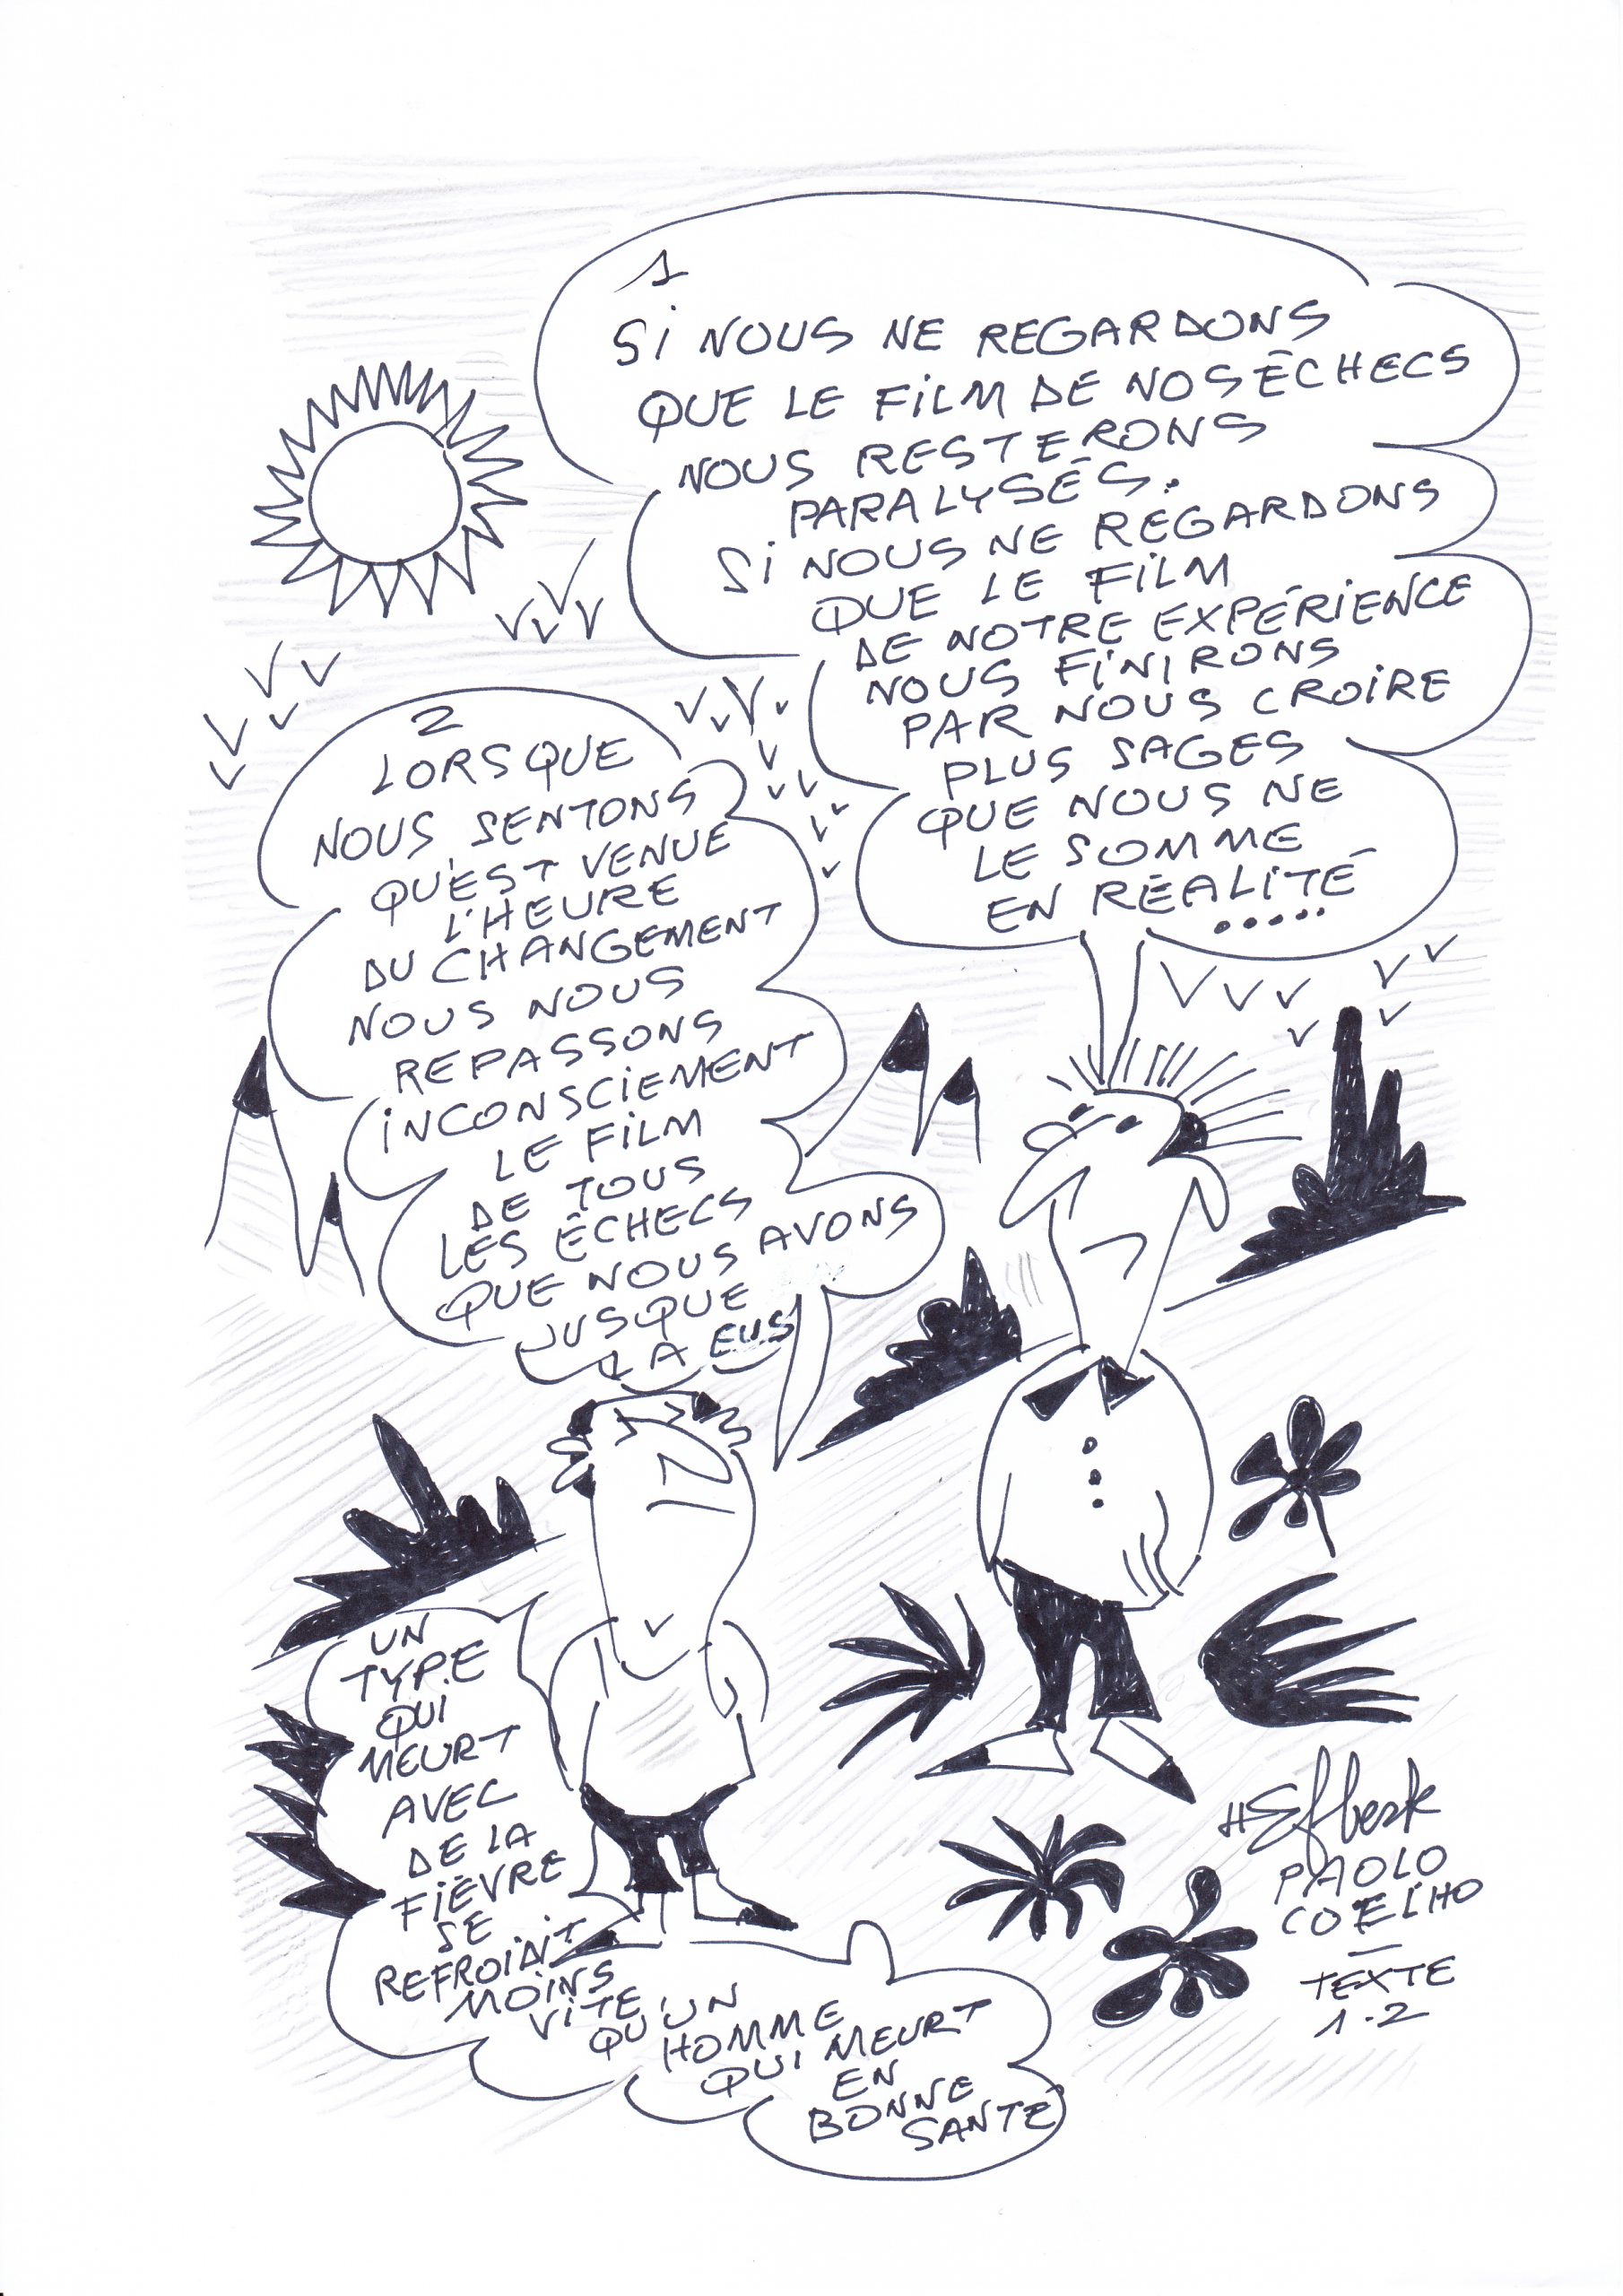 1
Si NOUS NE REGARDONS
QUE LE FiLM DE NOS ÉCHECS
NOUS RESTERONS
PARALYSÉS.
Si NOUS NE REGARDONS
QUE LE FiLM
DE NOTRE EXPÉRiENCE
NOUS FiNIRONS
PAR NOUS CROiRE
PLUS SAGES
QUE NOUS NE
LE SOMME
EN RÉALITÉ
.....
2
LORSQUE
NOUS SENTONS
QU'EST VENUE
L'HEURE
DU CHANGEMENT
NOUS NOUS
REPASSONS
iNCONSCiEMENT
LE FiLM
DE TOUS
LES ÉCHECS
QUE NOUS AVONS
JUSQUE
LA EUS
UN
TYPE
QUi
MEURT
AVEC
DE LA
FiÈVRE
SE
REFROiDiT
MOiNS
ViTE
QU'UN
HOMME
QUI MEURT
EN
BONNE
SANTÉ
PAOLO
COELHO
—
TEXTE
1.2